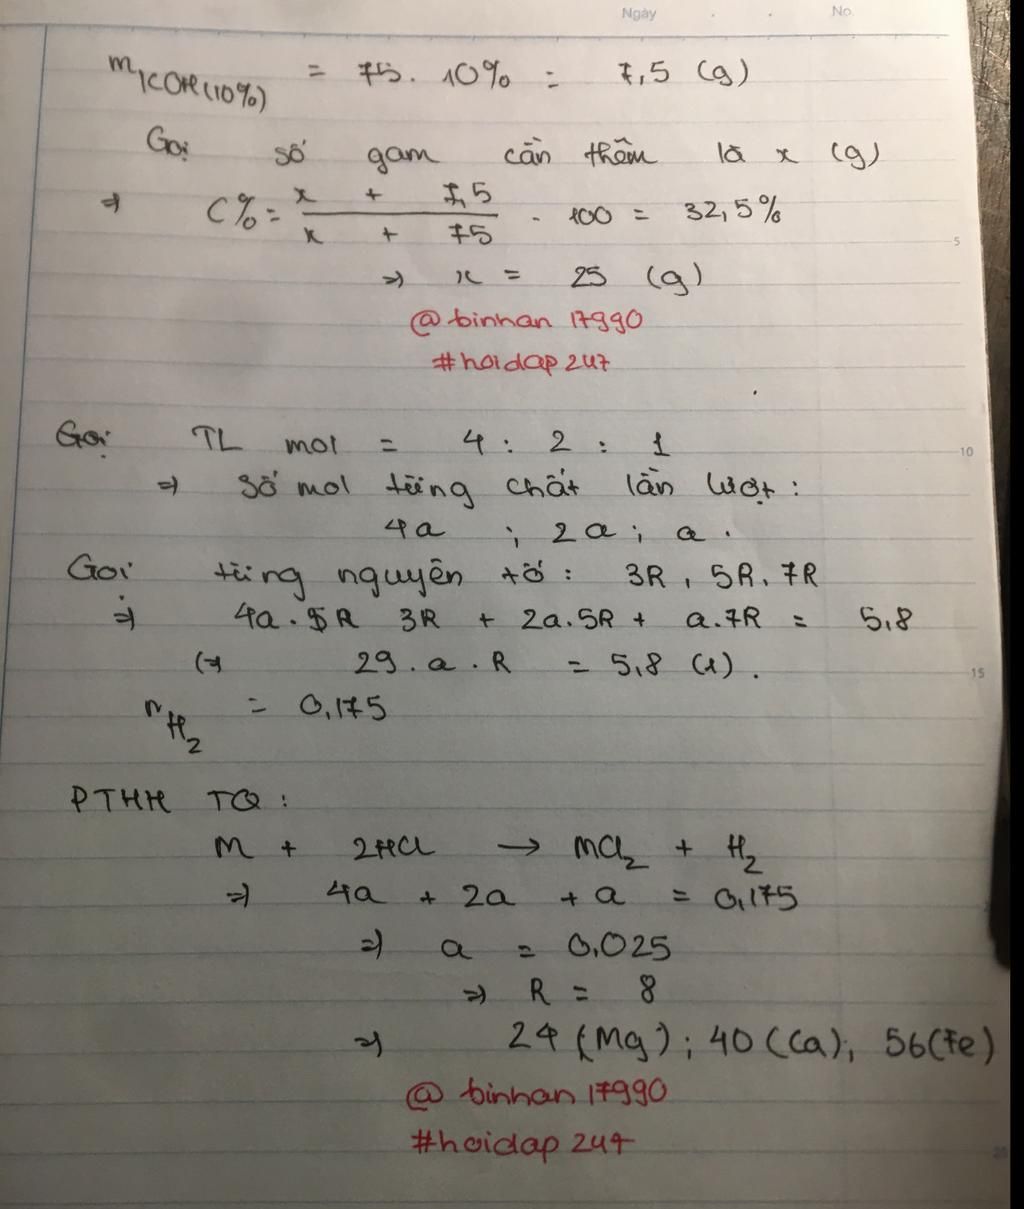 Ngày . . No.
m KOH(10%) = 75. 10% = 7,5 (g)
Gọi số gam cần thêm là x (g)
⇒ C% = (x + 7,5)/(x + 75) . 100 = 32,5%
5
⇒ x = 25 (g)
@binhan 17990
#hoidap247
Gọi TL mol = 4 : 2 : 1
10
⇒ số mol từng chất lần lượt :
4a ; 2a ; a .
Gọi từng nguyên tố : 3R , 5R . 7R
⇒ 4a . 5R 3R + 2a.5R + a.7R = 5,8
(⇒ 29 . a . R = 5,8 (1) .
15
nH₂ = 0,175
PTHH TQ :
M + 2HCl → MCl₂ + H₂
⇒ 4a + 2a + a = 0,175
⇒ a = 0,025
⇒ R = 8
⇒ 24 (Mg) ; 40 (Ca) ; 56 (Fe)
@ binhan 17990
#hoidap 247